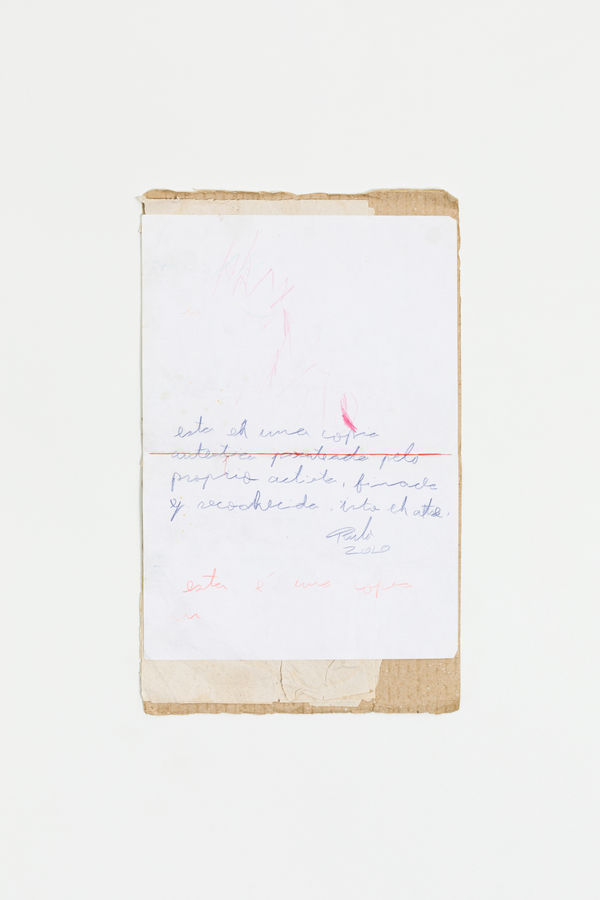 esta eh uma copia
autentica pelo
proprio artista, firmada
y reconhecida. isto eh arte.
Paulo
2010
esta é uma copia